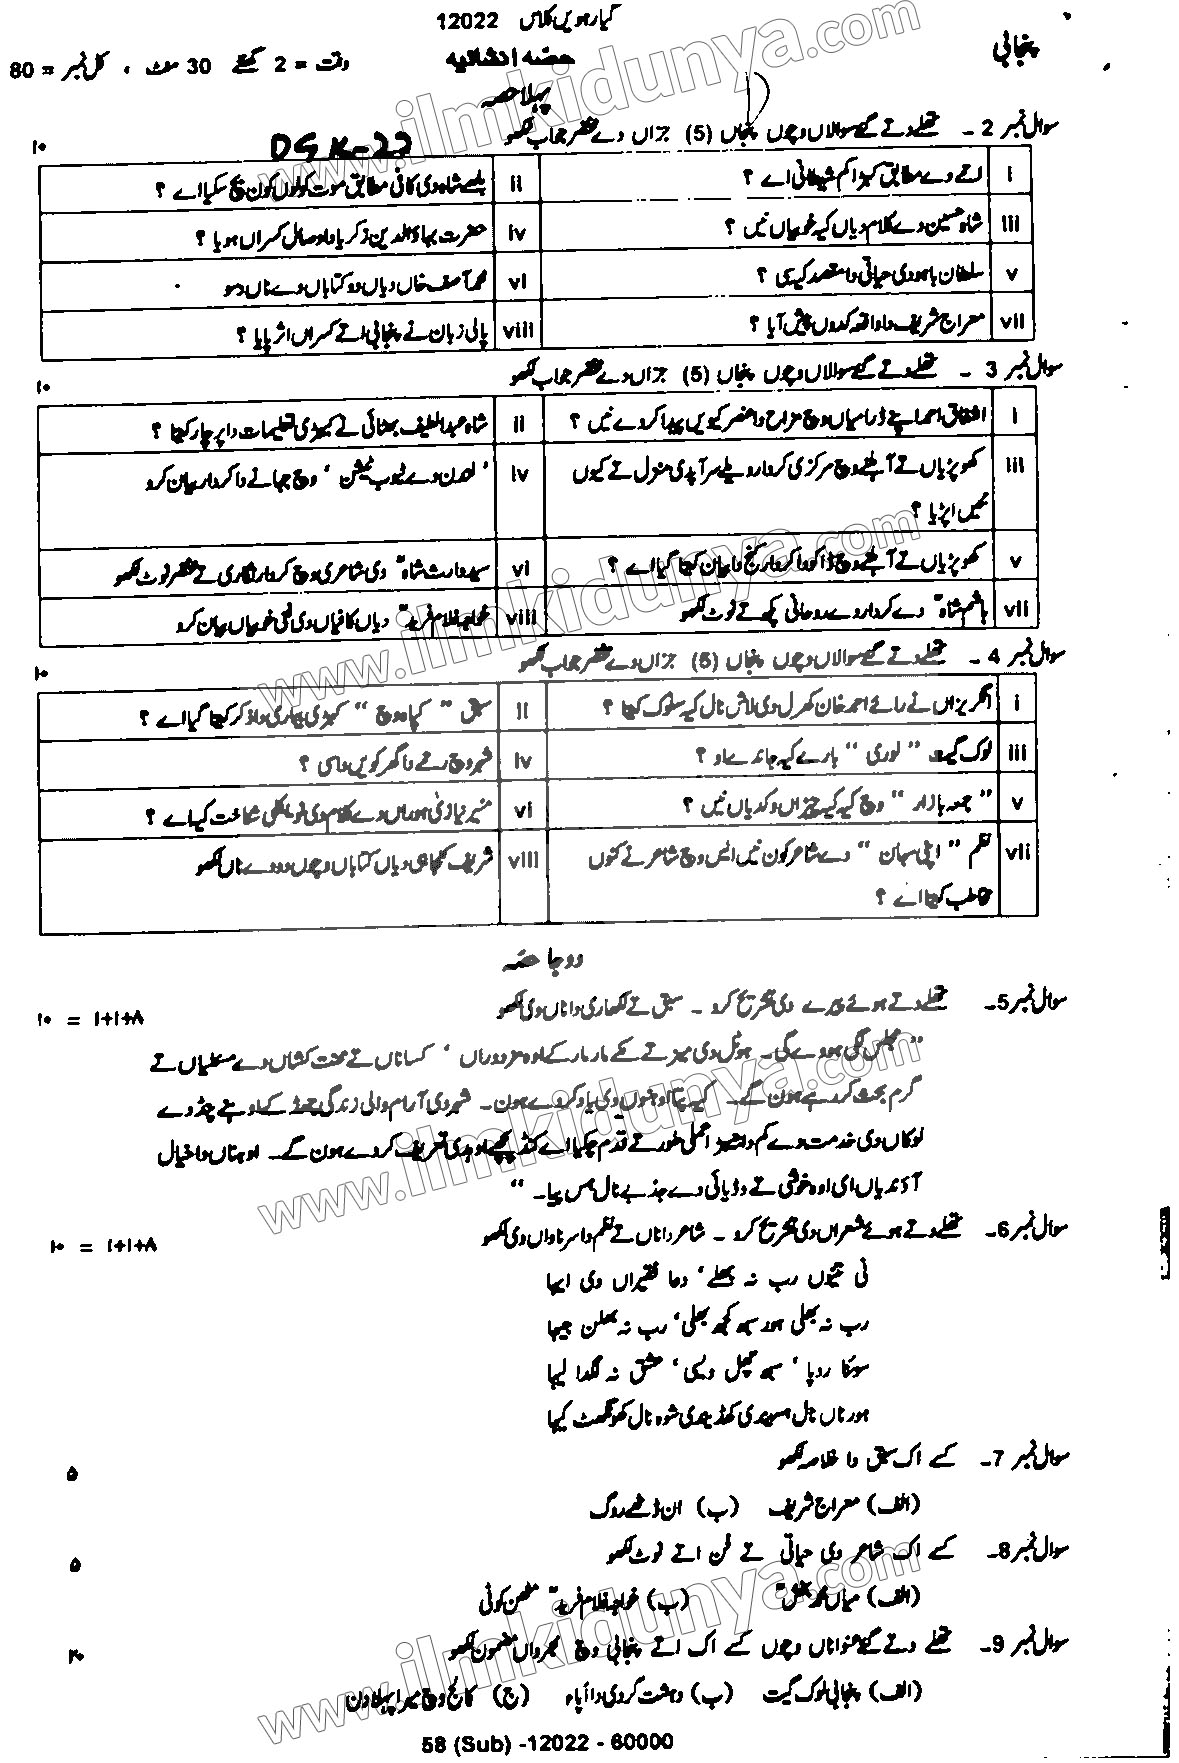 گیارہویں کلاس 12022
پنجابی
حصہ انشائیہ
وقت = 2 گھنٹے 30 منٹ ، کل نمبر = 80
پہلا حصہ
DGK-22
سوال نمبر 2 ۔ تھلے دتے گئے سوالاں وچوں پنجاں (5) جزاں دے مختصر جواب لکھو
۱۰
i اتے دے مطابق کیہڑا کم شیطانی اے ؟
ii بلھے شاہ دی کافی مطابق موت کولوں کون بچ سکیا اے ؟
iii شاہ حسین دے کلام دیاں کیہ خوبیاں نیں ؟
iv حضرت بہاؤالدین زکریا دا وصال کسراں ہویا ؟
v سلطان باہو دی حیاتی دا مقصد کیہ سی ؟
vi محمد آصف خاں دیاں دو کتاباں دے ناں دسو
vii معراج شریف دا واقعہ کدوں پیش آیا ؟
viii پالی زبان نے پنجابی اتے کسراں اثر پایا ؟
سوال نمبر 3 ۔ تھلے دتے گئے سوالاں وچوں پنجاں (5) جزاں دے مختصر جواب لکھو
۱۰
i اشفاق احمد اپنے ڈرامیاں وچ مزاح دا عنصر کیویں پیدا کردے نیں ؟
ii شاہ عبدالطیف بھٹائی نے کیہڑی تعلیمات دا پرچار کیتا ؟
iii کھوپڑیاں تے آہلنے وچ مرکزی کردار ویلے سر آپدی منزل تے کیوں
نہیں اپڑیا ؟
iv ' لندن دے ٹیوب سٹیشن ' وچ جہانے دا کردار بیان کرو
v کھوپڑیاں تے آہلنے وچ ڈاکو دا کردار کنج دا بیان کیتا گیا اے ؟
vi سید وارث شاہؒ دی شاعری وچ کردار نگاری تے مختصر نوٹ لکھو
vii ہاشم شاہؒ دے کردار دے روحانی پکھ تے نوٹ لکھو
viii خواجہ غلام فریدؒ دیاں کافیاں دی فنی خوبیاں بیان کرو
سوال نمبر 4 ۔ تھلے دتے گئے سوالاں وچوں پنجاں (5) جزاں دے مختصر جواب لکھو
۱۰
i انگریزاں نے رائے احمد خان کھرل دی لاش نال کیہ سلوک کیتا ؟
ii سبق " کپاہ وچ " کیہڑی بیماری دا ذکر کیتا گیا اے ؟
iii لوک گیت " لوری " بارے کیہ جاندے او ؟
iv شہر وچ رتے دا گھر کویں دا سی ؟
v " جمعہ بازار " وچ کیہ کیہ چیزاں وکدیاں نیں ؟
vi منیر نیازی ہوراں دے کلام دی نویکلی شناخت کیہ اے ؟
vii نظم " اپنی سہان " دے شاعر کون نیں ایس وچ شاعر نے کنوں
مخاطب کیتا اے ؟
viii شریف کنجاہی دیاں کتاباں وچوں دو دے ناں لکھو
دوجا حصہ
سوال نمبر 5۔ تھلے دتے ہوئے پیرے دی تشریح کرو ۔ سبق تے لکھاری دا ناں وی لکھو
۱۰ = ۱+۱+۸
" مجلس لگی ہووے گی ۔ ہوٹل دی میز تے مکے مار مار کے اوہ مزدوراں ' کساناں تے محنت کشاں دے مسئلیاں تے
گرم بحث کر رہے ہون گے ۔ کیہ پتا اوہنوں وی یاد کردے ہون ۔ شہر دی آرام والی زندگی چھڈ کے اوہنے پنڈ دے
لوکاں دی خدمت دے کم دا جیہڑا عملی طور تے قدم چکیا اے کنڈ پچھے اوہدی تعریف کردے ہون گے ۔ اوہناں دا خیال
آؤندیاں ای اوہ خوشی تے وڈیائی دے جذبے نال ہس پیا ۔ "
سوال نمبر 6۔ تھلے دتے ہوئے شعراں دی تشریح کرو ۔ شاعر دا ناں تے نظم دا سرناواں وی لکھو
۱۰ = ۱+۱+۸
نی تینوں رب نہ بھلے ' دعا فقیراں دی ایہا
رب نہ بھلی ہور سبھ کجھ بھلی ' رب نہ بھلن جیہا
سوئنا روپا ' سبھ چھل ویسی ' عشق نہ لگدا لیہا
ہورناں نال ہسیندی کھڈیندی شوہ نال کھونگھٹ کیہا
سوال نمبر 7۔ کسے اک سبق دا خلاصہ لکھو
۵
(الف) معراج شریف (ب) ان ڈٹھے روگ
سوال نمبر 8۔ کسے اک شاعر دی حیاتی تے فن اتے نوٹ لکھو
۵
(الف) میاں محمد بخشؒ (ب) خواجہ غلام فریدؒ مٹھن کوئی
سوال نمبر 9۔ تھلے دتے گئے عنواناں وچوں کسے اک اتے پنجابی وچ بھرواں مضمون لکھو
۲۰
(الف) پنجابی لوک گیت (ب) دہشت گردی دا اُپاء (ج) کالج وچ میرا پہلا دن
58 (Sub) -12022 - 60000
www.ilmkidunya.com
www.ilmkidunya.com
www.ilmkidunya.com
www.ilmkidunya.com